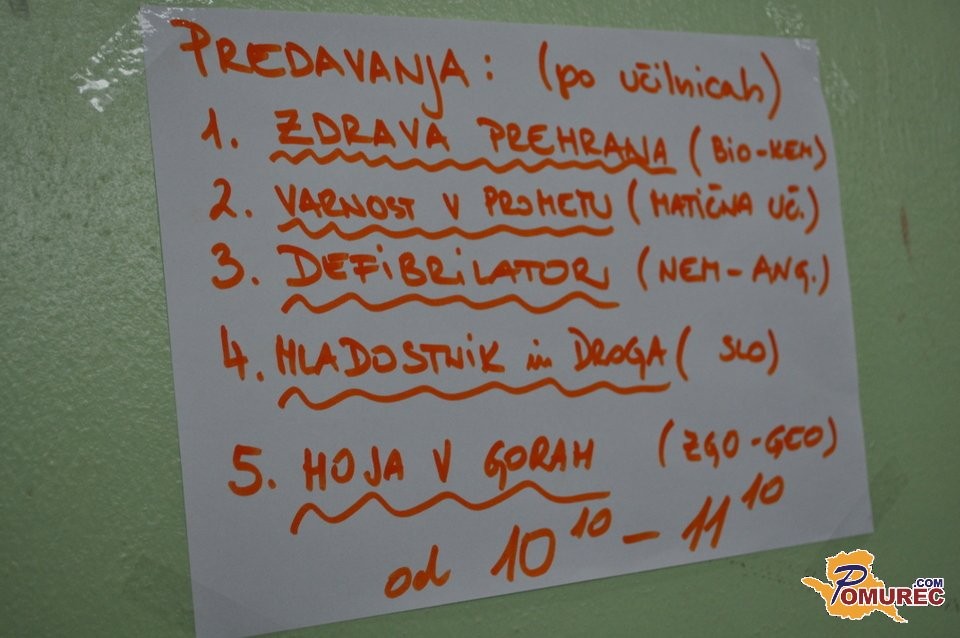 PREDAVANJA: (po učilnicah)
1. ZDRAVA PREHRANA (BiO-KEM)
2. VARNOST V PROMETU (MATIČNA UČ.)
3. DEFiBRiLATOR (NEM-ANG.)
4. MLADOSTNIK in DROGA (SLO)
5. HOJA V GORAH (ZGO-GEO)
od 10¹⁰ - 11¹⁰
POMUREC.COM